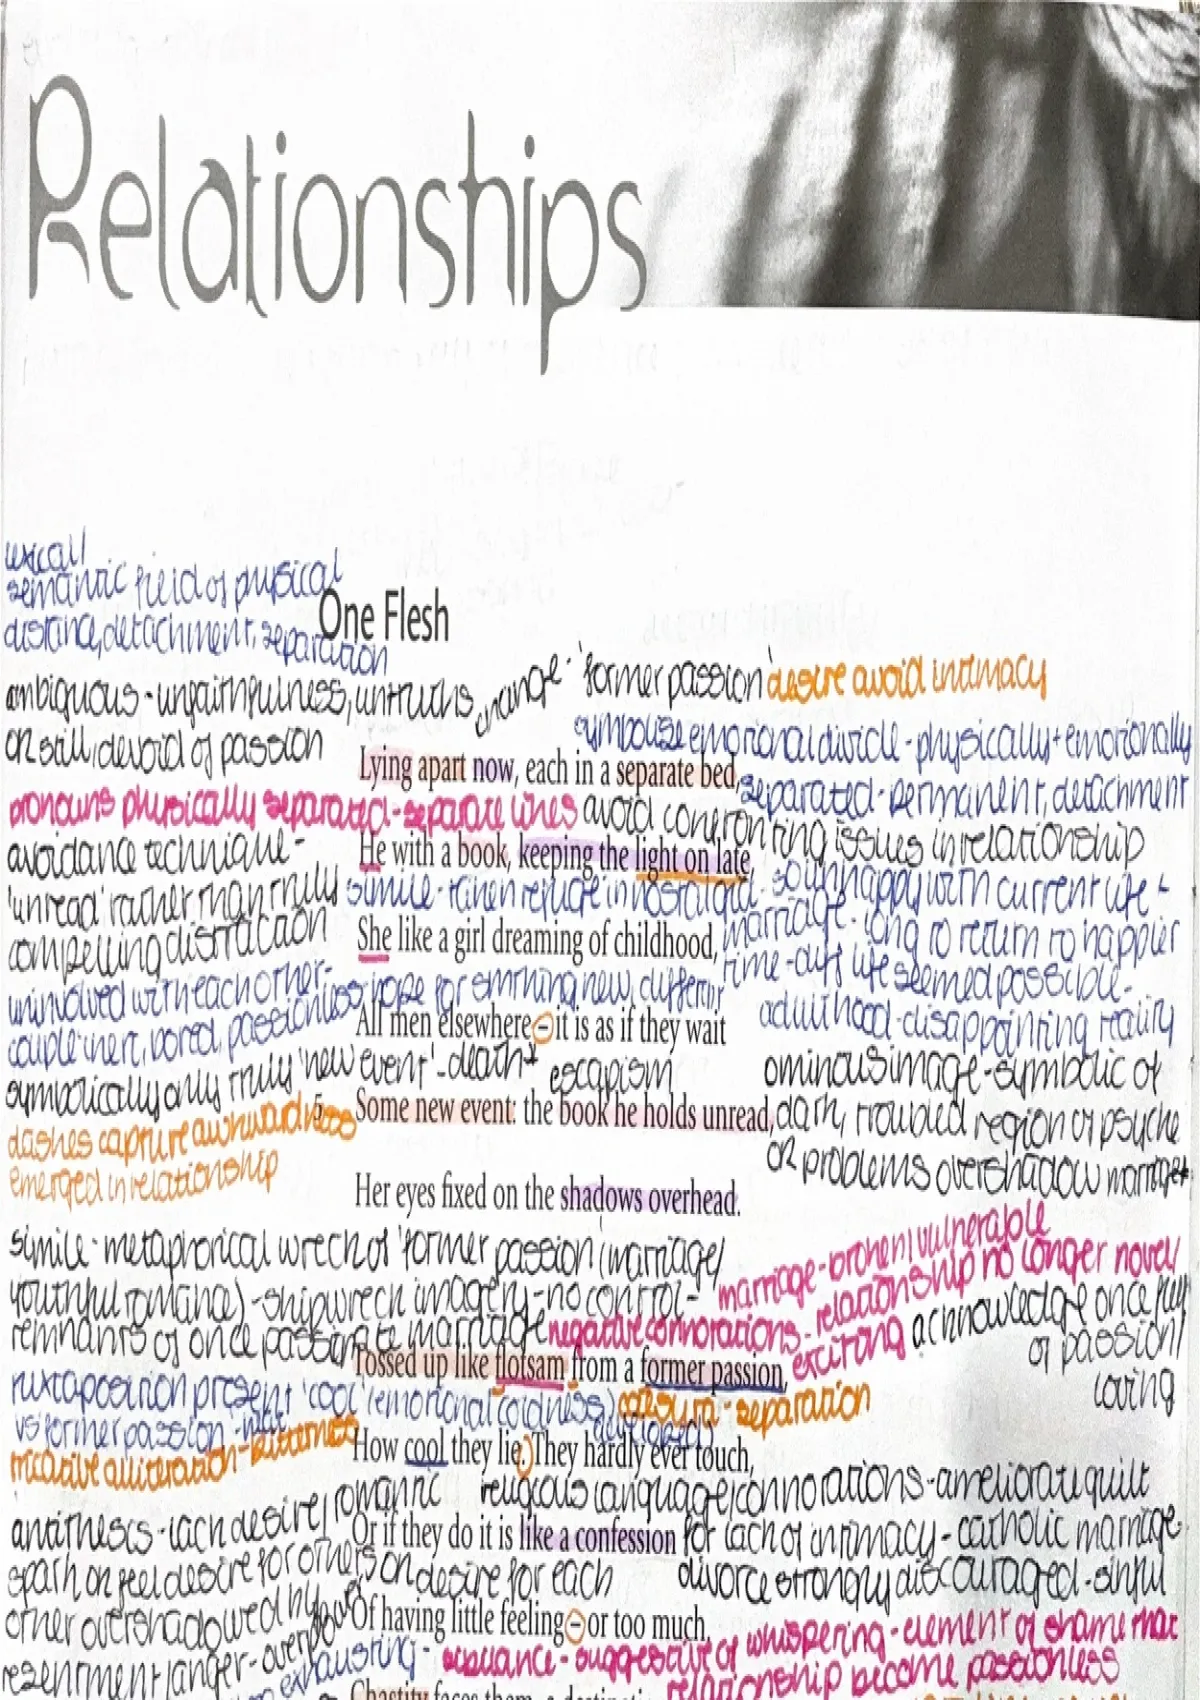 Relationships
lexical/
semantic field of physical
distance, detachment, separation
One Flesh
ambiguous - unfaithfulness, untruths
or still, devoid of passion
change - 'former passion'
desire avoid intimacy
symbolise emotional divide - physically + emotionally
separated - permanent, detachment
Lying apart now, each in a separate bed,
pronouns physically separated - separate lines
avoid confronting issues in relationship
avoidance technique -
'unread' rather than truly
compelling distraction
He with a book, keeping the light on late,
simile - taken refuge in nostalgia - so unhappy with current life +
marriage - long to return to happier
time - diff life seemed possible -
adulthood - disappointing reality
She like a girl dreaming of childhood,
uninvolved with each other -
couple inert, bored, passionless
hope for smthning new, different
All men elsewhere – it is as if they wait
symbolically only truly 'new event' - death +
escapism
ominous image - symbolic of
dark, troubled region of psyche
or problems overshadow marriage
5 Some new event: the book he holds unread,
dashes capture awkwardness
emerged in relationship
Her eyes fixed on the shadows overhead.
simile - metaphorical wreck of 'former passion' (marriage/
youthful romance) - shipwreck imagery - no control -
remnants of once passionate marriage
negative connotations -
marriage - broken/vulnerable
relationship no longer novel/
exciting
acknowledge once full
of passion/
loving
Tossed up like flotsam from a former passion,
juxtaposition present 'cool' (emotional coldness)
vs former passion -
developed
caesura - separation
fricative alliteration -
How cool they lie. They hardly ever touch,
antithesis - lack desire/romantic
spark or feel desire for others or desire for each
other overshadowed by
resentment/anger -
religious language/connotations - ameliorate guilt
for lack of intimacy - catholic marriage
divorce strongly discouraged - sinful
Or if they do it is like a confession
Of having little feeling – or too much.
exhausting -
sibilance - suggestive of whispering - element of shame that
relationship become passionless
Chastity faces them, a